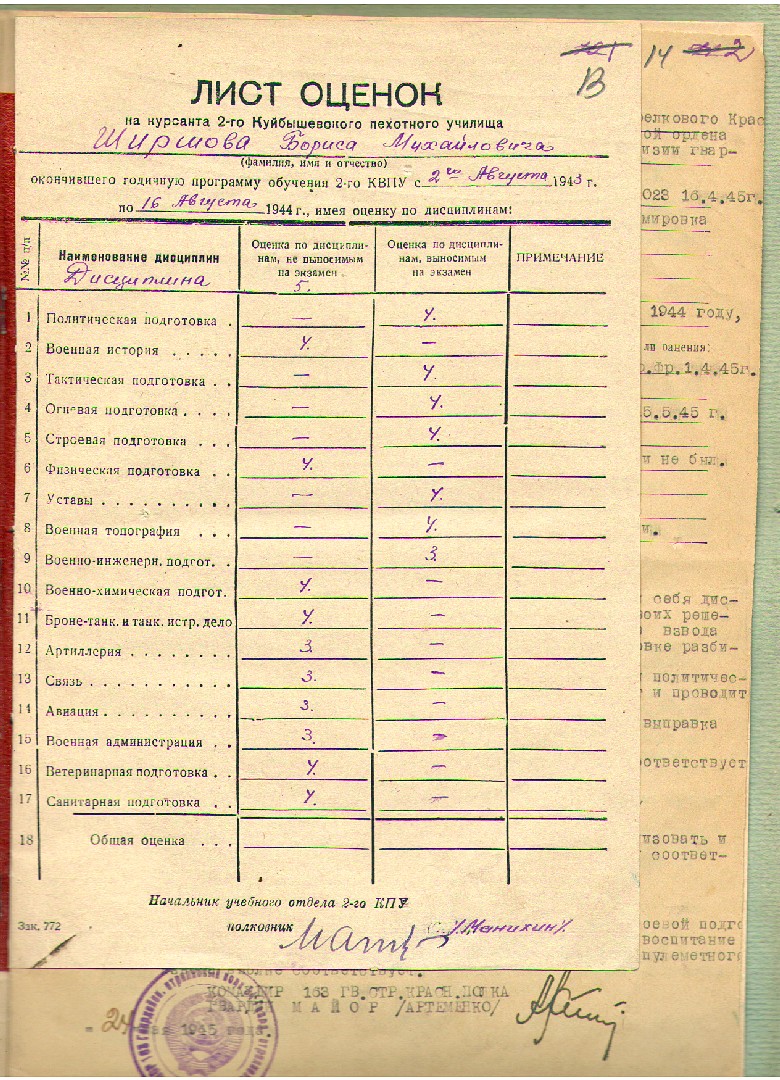 14
В
ЛИСТ ОЦЕНОК
на курсанта 2-го Куйбышевского пехотного училища
Ширшова Бориса Михайловича
(фамилия, имя и отчество)
окончившего годичную программу обучения 2-го КВПУ с 2го Августа 1943 г.
по 16 Августа 1944 г., имея оценку по дисциплинам:
№№ п/п Наименование дисциплин Оценка по дисциплинам, не выносимым на экзамен Оценка по дисциплинам, выносимым на экзамен ПРИМЕЧАНИЕ
Дисциплина 5.
1 Политическая подготовка . — 4.
2 Военная история . . . . . 4. —
3 Тактическая подготовка . . — 4.
4 Огневая подготовка . . . . — 4.
5 Строевая подготовка . . . — 4.
6 Физическая подготовка . . 4. —
7 Уставы . . . . . . . . . . — 4.
8 Военная топография . . — 4.
9 Военно-инженерн. подгот. . — 3.
10 Военно-химическая подгот. 4. —
11 Броне-танк. и танк. истр. дело 4. —
12 Артиллерия . . . . . . . . 3. —
13 Связь . . . . . . . . . . . 3. —
14 Авиация . . . . . . . . . . 3. —
15 Военная администрация . . 3. —
16 Ветеринарная подготовка . . 4. —
17 Санитарная подготовка . . 4. —
18 Общая оценка . . .
Начальник учебного отдела 2-го КПУ
полковник /Манихин/.
Зак. 772
елкового Крас
ой ордена
изии гвар-
023 16.4.45г.
мировка
1944 году,
ли ранения:
.фр.1.4.45г.
5.5.45 г.
и не был.
себя дис-
оих реше-
взвода
вке разби-
политичес-
и проводит
выправка
ответствует
изовать и
соответ-
оевой подго
воспитание
пулеметного
соответствует.
КОМАНДИР 163 ГВ.СТР.КРАСН.ПОЛКА
ГВАРДИИ МАЙОР /АРТЕМЕНКО/
" 24 мая 1945 года.